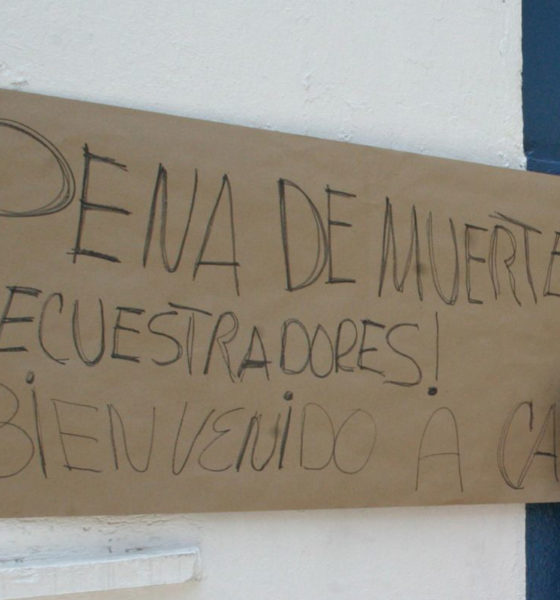 PENA DE MUERTE
ECUESTRADORES!
BiENVENiDO A CA